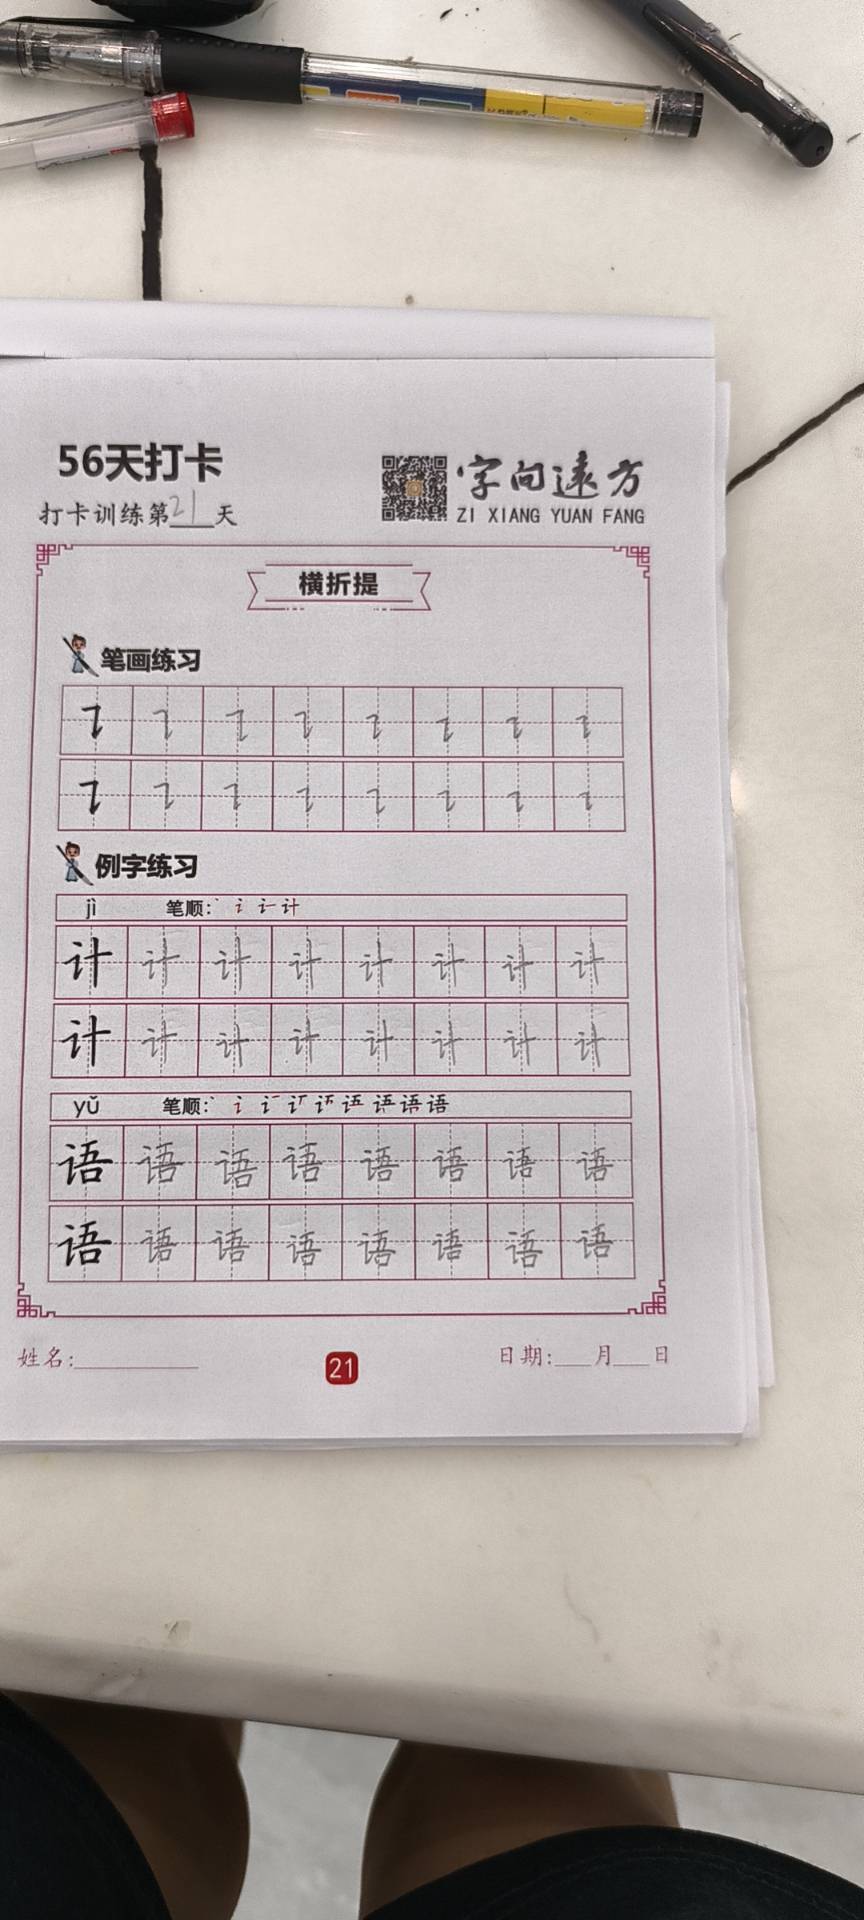 56天打卡
字向远方
ZI XIANG YUAN FANG
打卡训练第21天
横折提
笔画练习
例字练习
jì 笔顺: 丶 讠 计
计 计 计 计 计 计 计 计
计 计 计 计 计 计 计 计
yǔ 笔顺: 语 语
语 语 语 语 语 语 语 语
语 语 语 语 语 语 语 语
姓名:
21
日期:___月___日